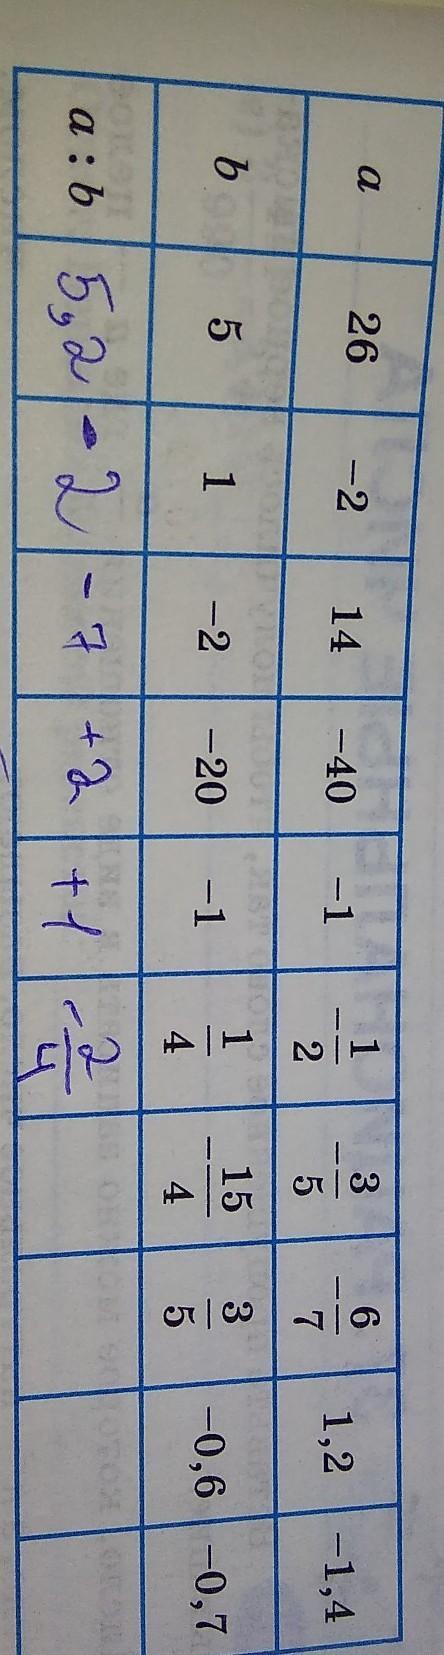 a 26 −2 14 −40 −1 −1/2 −3/5 −6/7 1,2 −1,4
b 5 1 −2 −20 −1 1/4 −15/4 3/5 −0,6 −0,7
a : b 5,2 -2 -7 +2 +1 -2/4